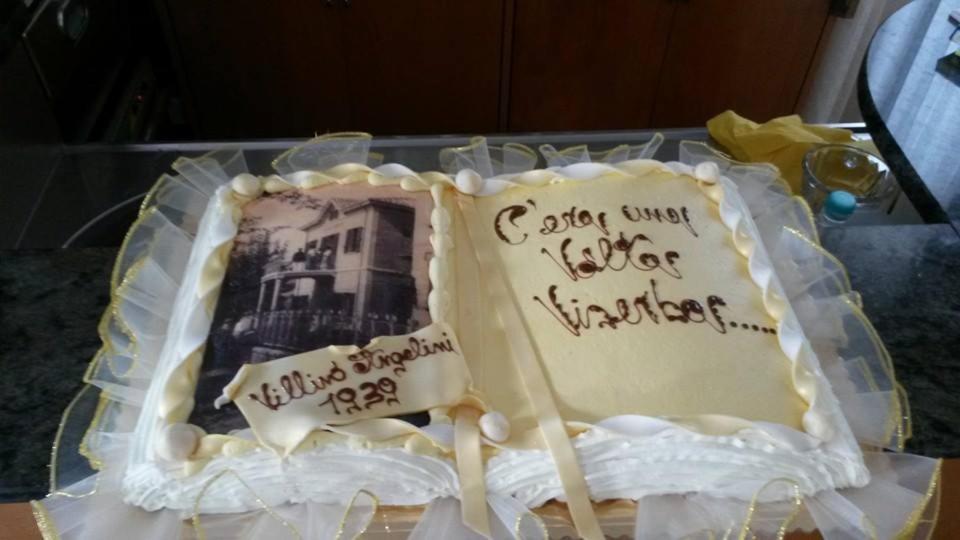 Villino Angelini
1939
C'era una
Volta
Viserba.....